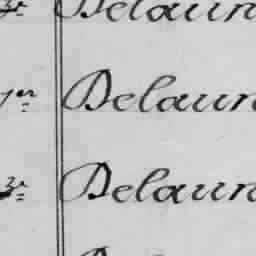 3e Delaun
1er Delaun
3e Delaun